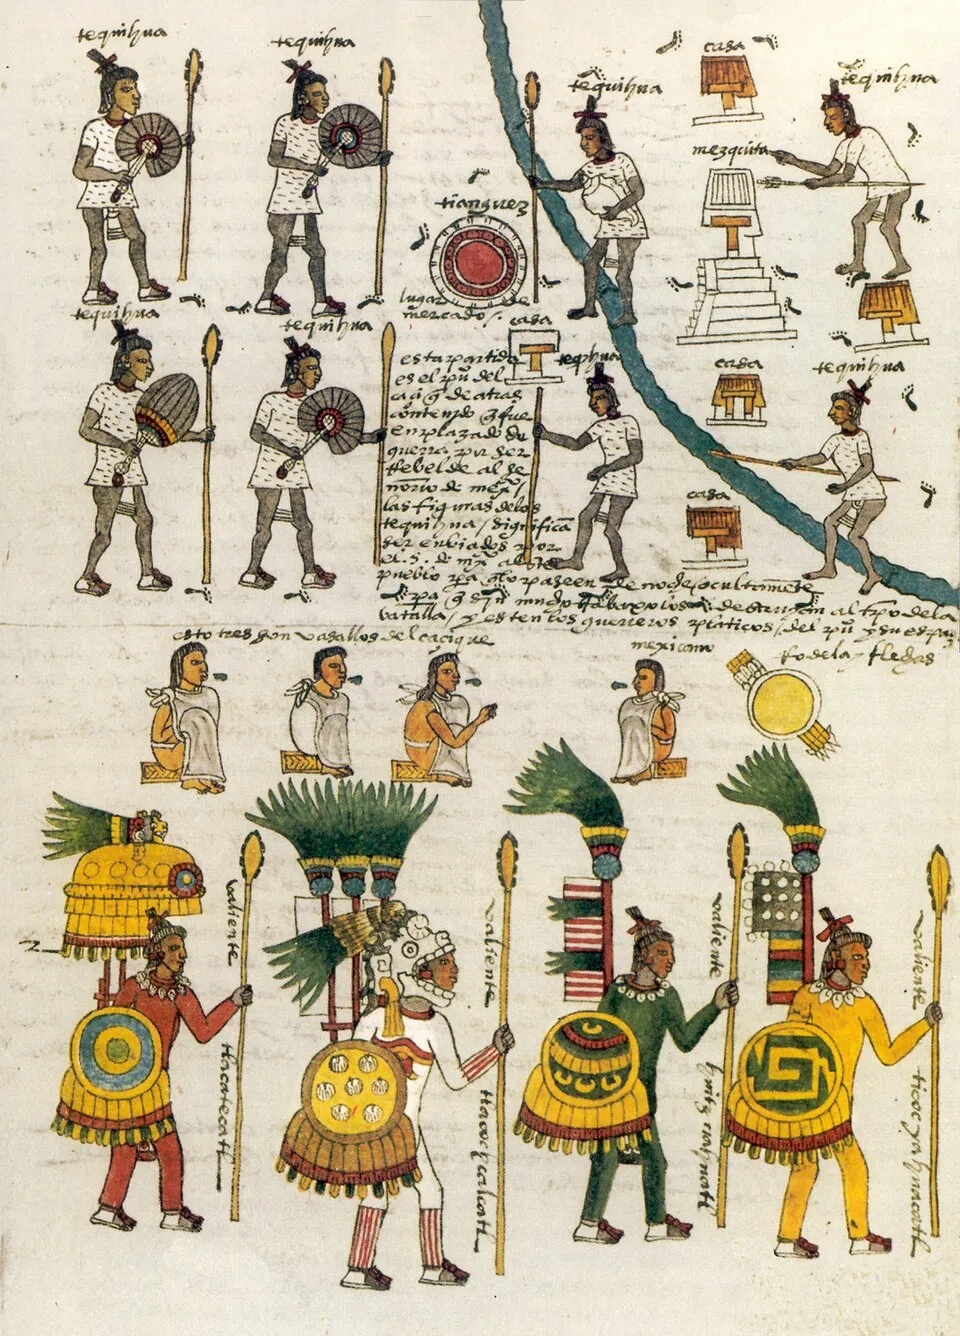 tequihua
tequihua
tequihua
casa
tequihua
mezquita
tianguez
lugar de
mercado /.
tequihua
tequihua
casa
tequihua
casa
tequihua
casa
esta partida
es el pu° del
caciq de atras
contenido q fue
emplazado de
guerra por ser
Rebelde al se
norio de mexco /
las figuras de los
tequihua / significa
ser enbiados por
el s. de mexco al
pueblo pa q lo paseen de noche ocultamente
destruyan al tpo de la
batalla / y esten los guerreros platicos / del pu°
estos tres son vasallos del cacique
mexicano
Rodela y flechas
valiente
tlacatecatl
valiente
tlacochcalcatl
valiente
huitznahuatl
valiente
ticocyahuacatl